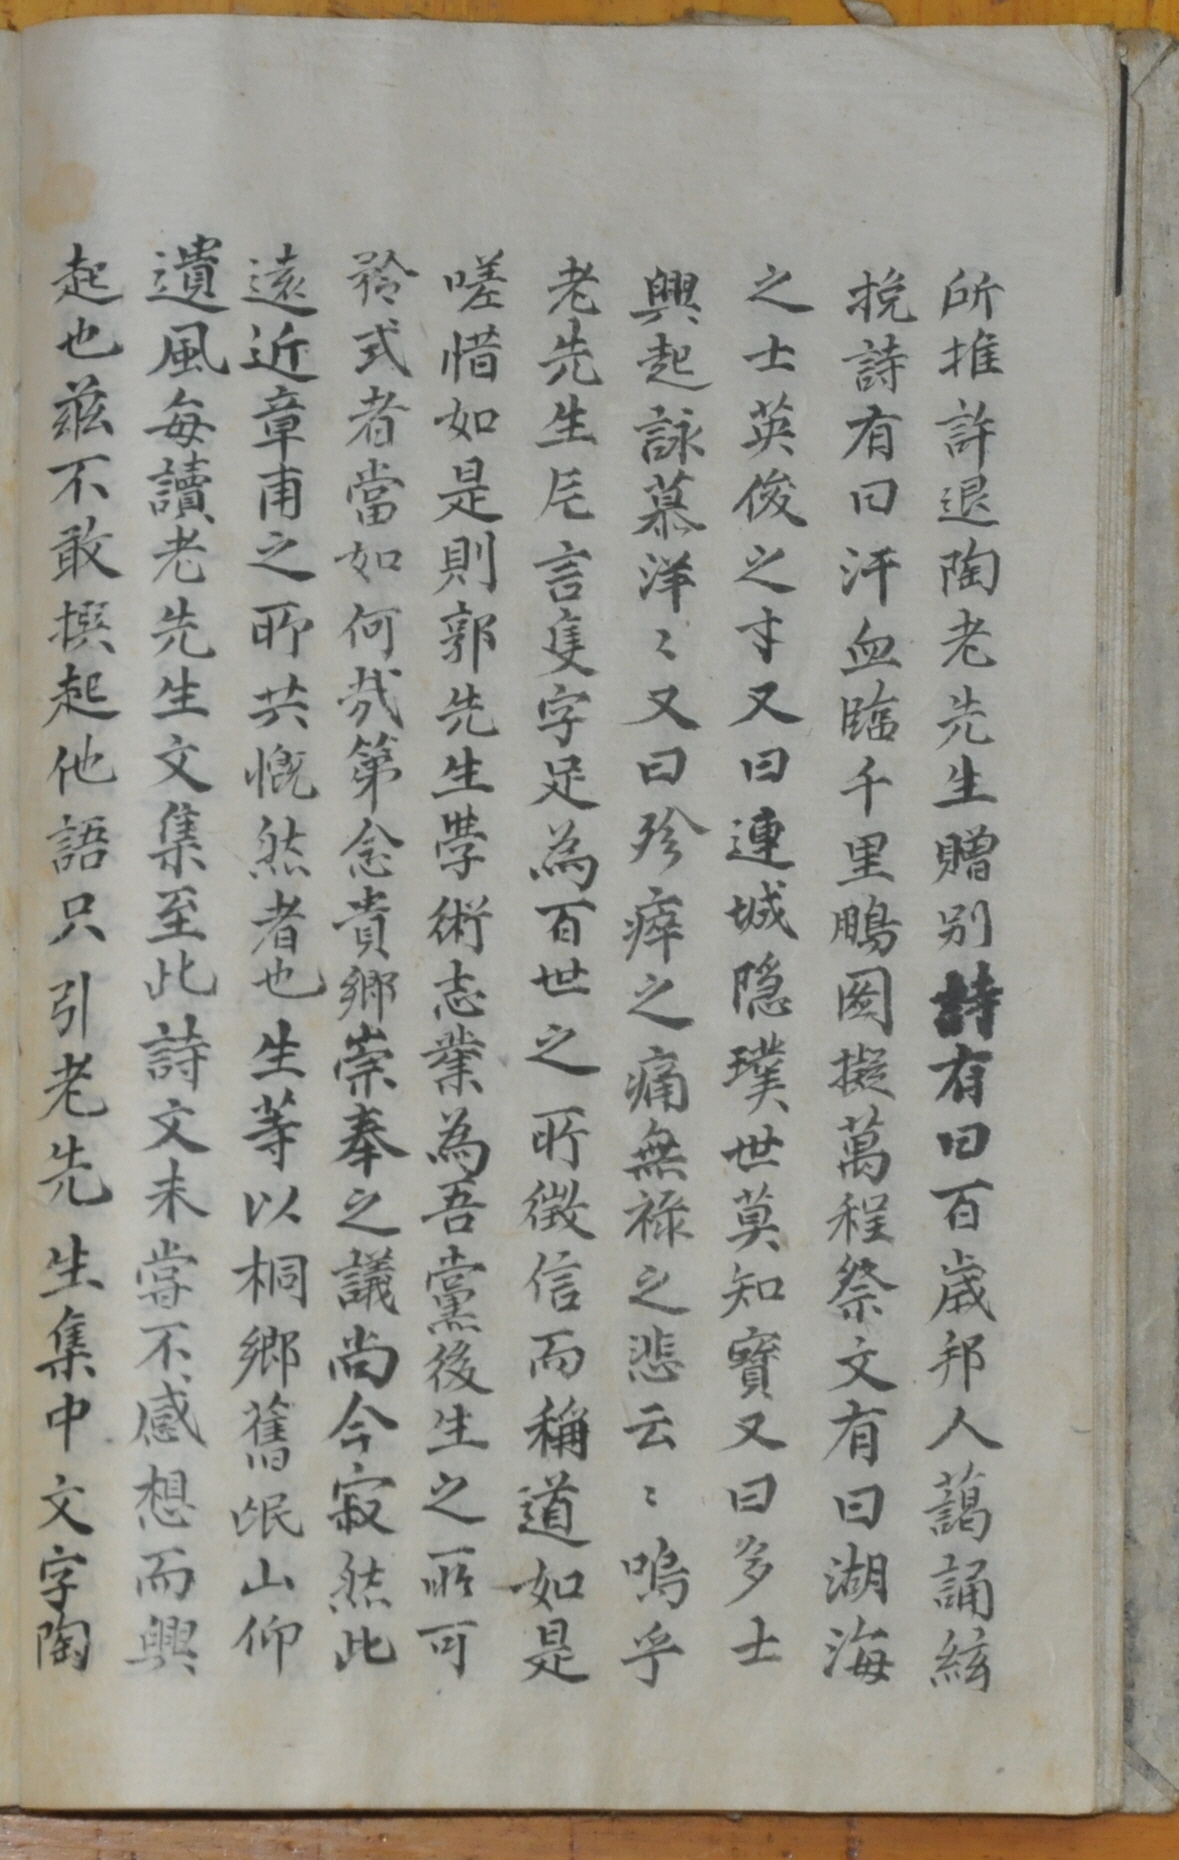 所推許退陶老先生贈別詩有曰百歲邦人藹誦絃
挽詩有曰汗血臨千里鵬圖擬萬程祭文有曰湖海
之士英俊之才又曰連城隠璞世莫知寶又曰多士
興起詠慕洋〻又曰殄瘁之痛無祿之悲云〻嗚乎
老先生片言隻字足為百世之所徵信而稱道如是
嗟惜如是則郭先生學術志業為吾黨後生之所可
矜式者當如何㦲第念貴鄉崇奉之議尚今寂然此
遠近章甫之所共慨然者也生等以桐鄉舊氓山仰
遺風每讀老先生文集至此詩文未嘗不感想而興
起也茲不敢撰起他語只引老先生集中文字陶